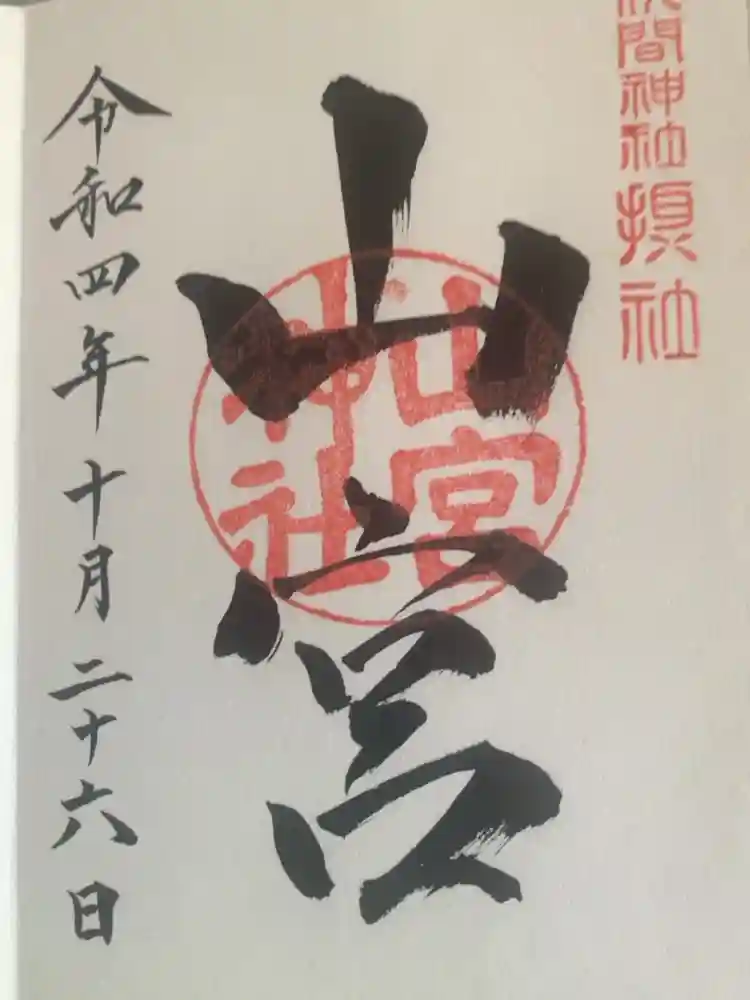 間神社摂社
山宮
山宮
神社
令和四年十月二十六日